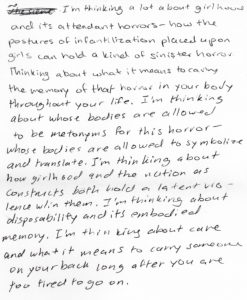 I'm thinking a lot about girlhood
and its attendant horrors - how the
postures of infantilization placed upon
girls can hold a kind of sinister horror.
Thinking about what it means to carry
the memory of that horror in your body
throughout your life. I'm thinking
about whose bodies are allowed
to be metonyms for this horror -
whose bodies are allowed to symbolize
and translate. I'm thinking about
how girlhood and the nation as
constructs both hold a latent vio-
lence w/in them. I'm thinking about
disposability and its embodied
memory. I'm thinking about care
and what it means to carry someone
on your back long after you are
too tired to go on.